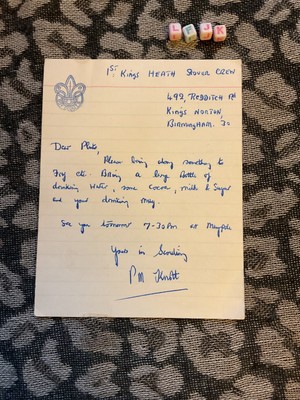 L F J K
1ST KINGS HEATH ROVER CREW
499, REDDITCH RD
KINGS NORTON,
BIRMINGHAM. 30
Dear Phil,
Please bring along something to
Fry etc. Bring a large Bottle of
drinking water, some Cocoa, milk & Sugar
and your drinking mug.
See you tomorrow 7-30pm at Maypole
Yours in Scouting